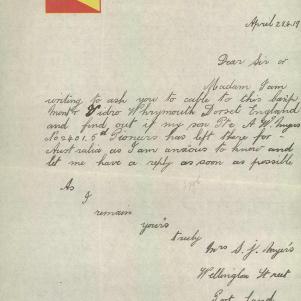 April 22.4.19
Dear Sir or
Madam I am
writing to ask you to cable to this
Weymouth Dorset England
and find out if my son Pte A. W. Myers
No 2401. 5th Pioneers has left there for
Australia as I am anxious to know and
let me have a reply as soon as possible
As
I
remain
your's
truely
Mrs S. J. Myers
Wellington Street